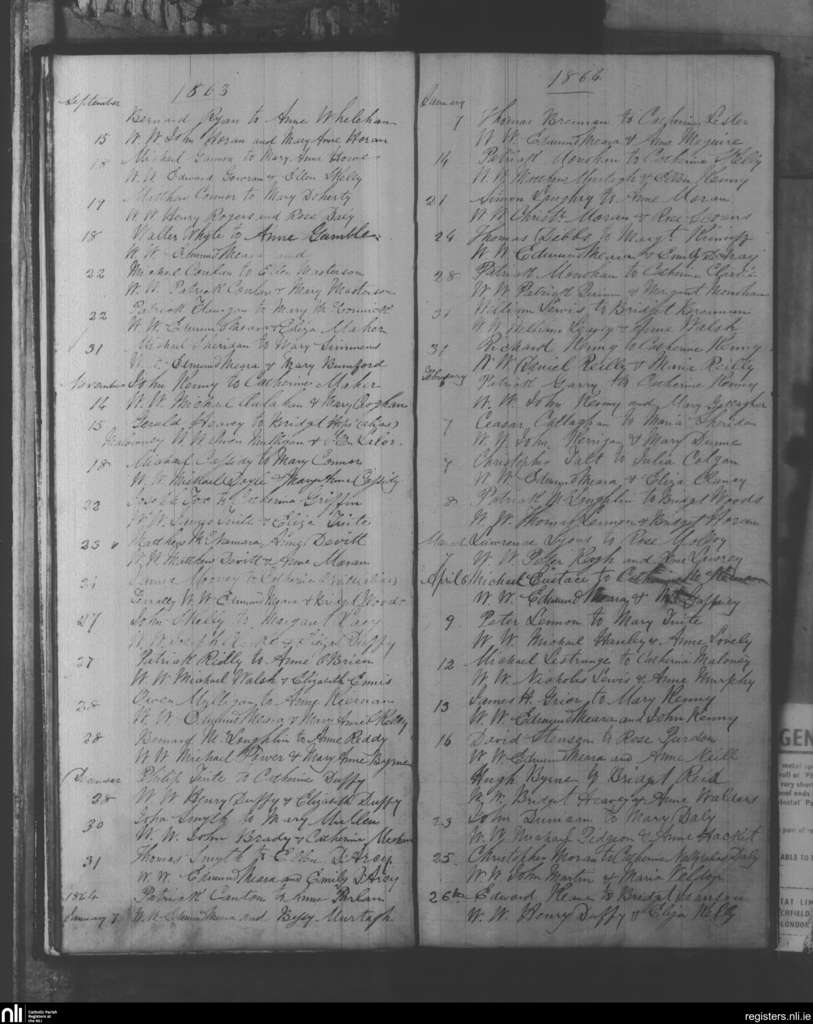 1863
September
Bernard Ryan to Anne Whelehan
15 W. W. John Horan and Mary Anne Horan
18 Michael Gannon to Mary Anne
W. W. Edward & Ellen Skelly
19 Matthew Connor to Mary Doherty
W W Henry Rogers and Rose Daly
18 Walter Whyte to Anne Gamble
W. W. Edmund Meara and
22 Michael Conlon to Ellen Masterson
W. W. Patrick Conlon & Mary Masterson
22 Patrick Flanagan to Mary McCormick
W. W. Edmund Meara & Eliza Maher
31 Michael Sheridan to Mary Simmons
W. W. Edmund Meara & Mary Bumford
November John Kenny to Catherine Maher
14 W. W. Michael & Mary Coghlan
15 Gerald Heavey to Bridget (alias)
W W Owen Mulligan &
18 Michael Cassidy to Mary Connor
W. W. Michael Doyle & Mary Anne Cassidy
22 Joseph Fox to Catherine Griffin
W. W. James Tuite & Eliza Tuite
23 Matthew McNamara, Devitt
W. W. Matthew Devitt & Anne Moran
James Mooney to Catherine
W. W. Edmund Meara & Bridget Woods
27 John Skelly to Margaret
W W Joseph & Eliza Duffy
27 Patrick Reilly to Anne O'Brien
W. W. Michael Walsh & Elizabeth Ennis
28 Owen Mulligan to Anne Kiernan
W. W. Edmund Meara & Mary Anne Reilly
28 Bernard McLoughlin to Anne Reddy
W W Michael Power & Mary Anne Byrne
December Philip Tuite to Catherine Duffy
28 W W Henry Duffy & Elizabeth Duffy
30 John Smyth to Mary Mullen
W. W. John Brady & Catherine
31 Thomas Smyth to Ellen D'Arcy
W. W. Edmund Meara and Emily D'Arcy
1864 Patrick Canton to Anne
January 7 W. W. Edmund Meara and Bessy Murtagh
1864
January
7 Thomas Brennan to Catherine Lester
W. W. Edmund Meara & Anne Maguire
14 Patrick Monahan to Catherine Skelly
W W Matthew Murtagh & Ellen Kenny
21 Simon Loughry to Anne Moran
W W Christr. Moran & Rose
24 Thomas to Margt.
W W Edmund Meara & Emily
28 Patrick Monahan to Catherine
W W Patrick & Margaret Monahan
31 William Lewis to Bridget Brennan
W W William & Anne Walsh
31 Richard to Catherine Kenny
W W Daniel Reilly & Maria Reilly
February
Patrick Garry to Catherine Kenny
W. W. John Kenny and Mary Gallagher
7 Ceasar Callaghan to Maria Sheridan
W. W. John Kerrigan & Mary Dunne
7 Christopher Talt to Julia Colgan
W. W. Edmund Meara & Eliza Clancy
8 Patrick McLoughlin to Bridget Woods
W. W. Thomas Lennon & Bridget Horan
March Lawrence Lyons to Rose McEvoy
7 W W Peter Keogh and
April 6 Michael Eustace to Catherine
W W Edmund Meara & Gaffney
9 Peter Lennon to Mary Tuite
W. W. Michael Hanley & Anne Lovely
12 Michael Lestrange to Catherine Maloney
W W Nicholas Lewis & Anne Murphy
13 James H. Grier to Mary Kenny
W W Edmund Meara and John Kenny
16 David Stenson to Rose Purdon
W W Edmund Meara and Anne Neill
Hugh Byrne to Bridget Reid
W. W. Bridget Heavey & Anne Walders
23 John Duncan to Mary Daly
W. W. Michael Pidgeon & Anne Hackett
25 Christopher Moran to Catherine Daly
W W John Martin & Maria
26th Edward to Bridget
W. W. Henry Duffy & Eliza Kelly
GEN
TAT LIM
LONDON
nli Catholic Parish
Registers at
the NLI
registers.nli.ie